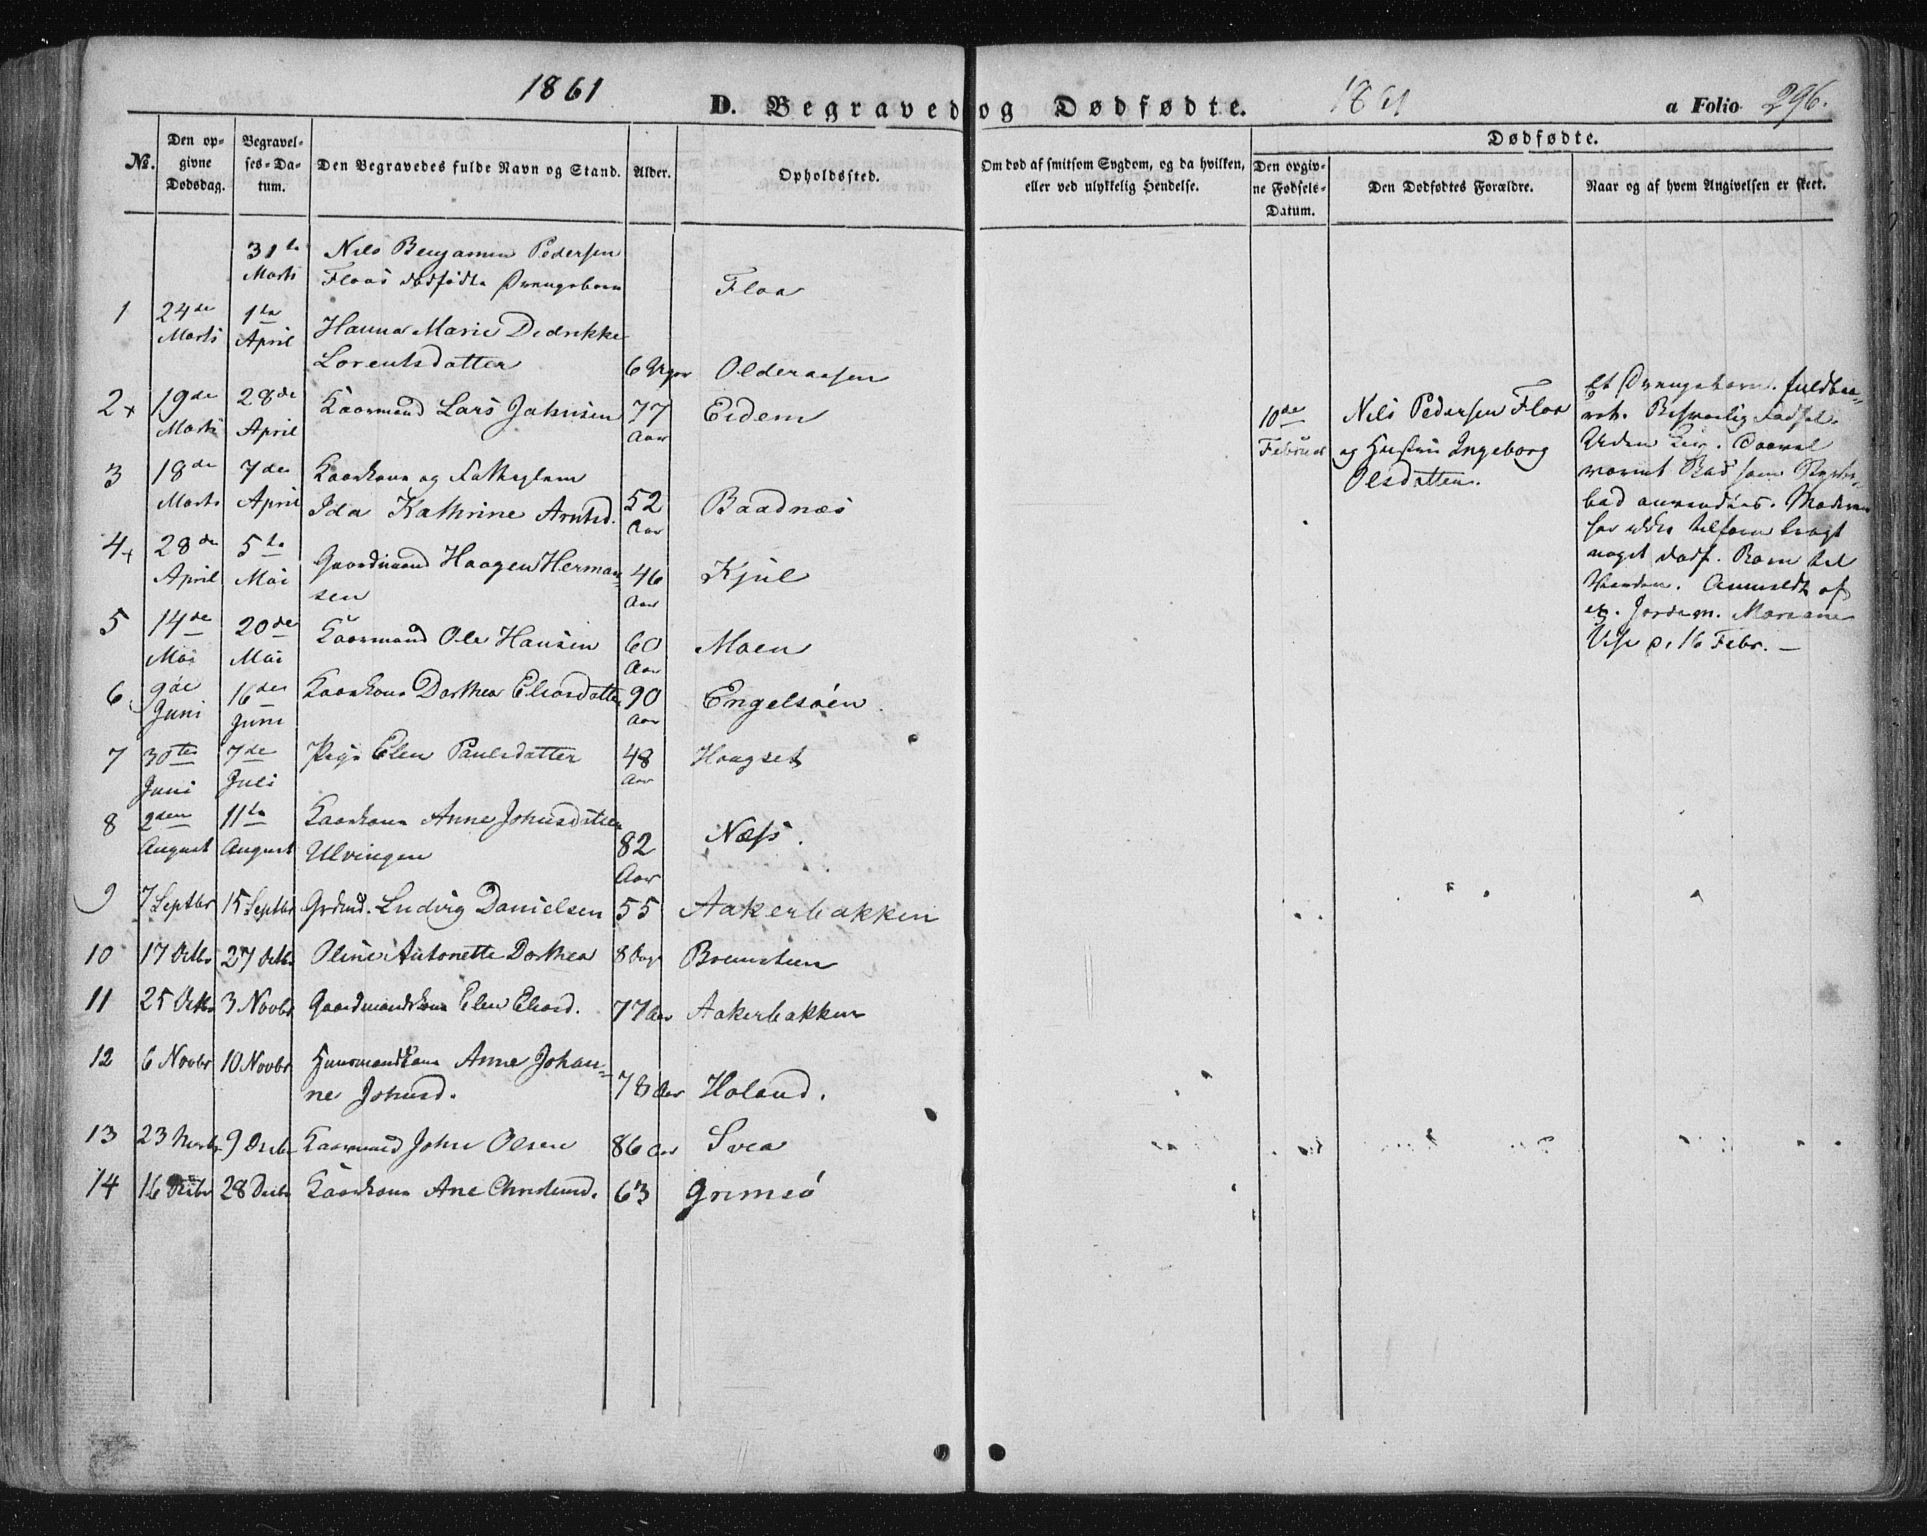 1861
D. Begravede og Dødfødte.
1861
a Folio 296.
No.
Den opgivne Dødsdag.
Begravelses-Datum.
Den Begravedes fulde Navn og Stand.
Alder.
Opholdssted.
Om død af smitsom Sygdom, og da hvilken, eller ved ulykkelig Hendelse.
Dødfødte.
Den opgivne Fødsels-Datum.
Den Dødfødtes Forældre.
Naar og af hvem Angivelsen er skeet.
31te Nils Benjamin Pedersen
Marts Floas dødfødte Drengebarn Floa
1 24de 1ste Hanna Marie Didrikke
Marts April Lorentsdatter 6 Uger Olderaasen
2 19de 28de Kaarmand Lars Jahnsen 77 Eidem
Marts April Aar
3 18de 7de Kaarkone og
Marts April Ida Kathrine Arntsd. 52 Baadnæs
Aar
4 28de 5te Gaardmand Haagen Herman- 46 Kjul
April Mai sen Aar
5 14de 20de Kaarmand Ole Hansen 60 Moen
Mai Mai Aar
6 9de 16de Kaarkone Dorthea Elsasdatter 90 Engelsøen
Juni Juni Aar
7 30te 7de Pige Elen Paulsdatter 48 Haagset
Juni Juli Aar
8 2den 11te Kaarkone Anne Johnsdatter
August August Ulvingen 82 Næss.
Aar
9 7 Septbr 15 Septbr Grdmd. Ludvig Danielsen 55 Aakerbakken
10 17 Octb 27 Octb. Oline Antonette Dorthea 8 Dage Bremsteen
11 25 Octb 3 Novbr Gaardmandskone Elen Elsasd. 77 Aar Aakerbakken
12 6 Novbr 10 Novbr Huusmandskone Anne Johan-
ne Johnsd. 78 Aar Holand.
13 23 Novbr 9 Decbr Kaarmand John Olsen 86 Aar Svea
14 16 Decbr 28 Decbr Kaarkone Ane Christensd. 63 Grimsø
10de Februar
Nils Pedersen Floa
og Hustru Ingeborg
Olsdatter.
et Drengebarn fuldbaa-
ret. Besværlig Fødsel.
Uden Liv.
varmt Bad som
bad anvendtes. Moderen
har ikke tilforn bragt
noget dødf. Barn til
Verden. Anmeldt af
ex. Jordem. Mariane
16 Febr. —